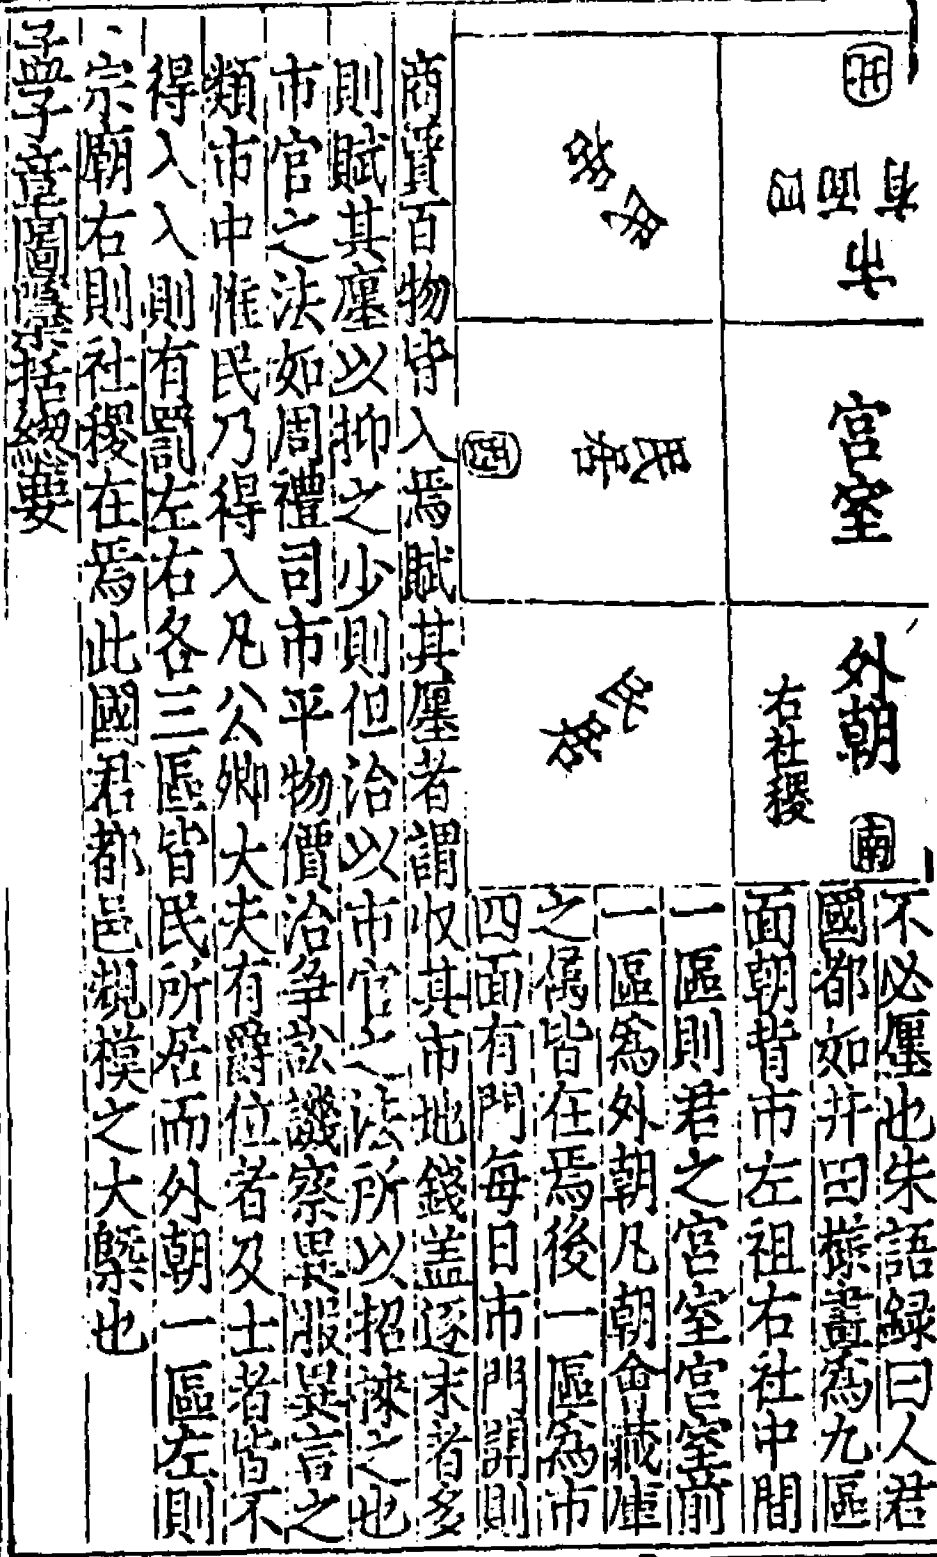 北
市
宮室
外朝
右社稷
南
民居
民居
西
民居
不必廛也朱語録曰人君
國都如井田㨾畫為九區
面朝背市左祖右社中間
一區則君之宮室宮室前
一區為外朝凡朝會藏庫
之屬皆在焉後一區為市
四面有門每日市門開則
商賈百物皆入焉賦其廛者謂收其市地錢盖逐末者多
則賦其廛以抑之少則但治以市官之法所以招徠之也
市官之法如周禮司市平物價治爭訟譏察異服異言之
類市中惟民乃得入凡公卿大夫有爵位者及士者皆不
得入入則有罰左右各三區皆民所居而外朝一區左則
宗廟右則社稷在焉此國君都邑規模之大槩也
孟子章圖檃括總要